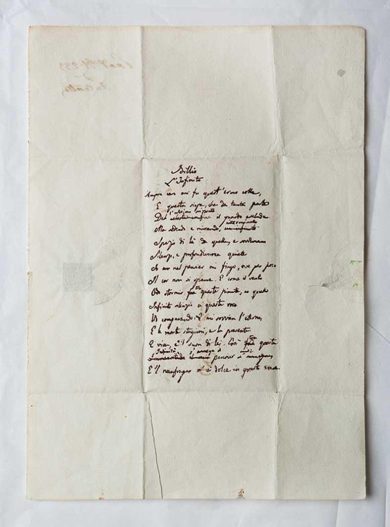 Idillio
L'Infinito
Sempre caro mi fu quest'ermo colle,
E questa siepe, che da tanta parte
De l'ultimo orizzonte il guardo esclude.
Ma sedendo e mirando, interminato
Spazio di là da quella, e sovrumani
Silenzi, e profondissima quiete
Io nel pensier mi fingo, ove per poco
Il cor non si spaura. E come il vento
Odo stormir fra queste piante, io quello
Infinito silenzio a questa voce
Vo comparando: e mi sovvien l'eterno,
E le morte stagioni, e la presente
E viva, e 'l suon di lei. Così fra questa
il mio pensiero s'annega,
E 'l naufragar m'è dolce in questo mare.